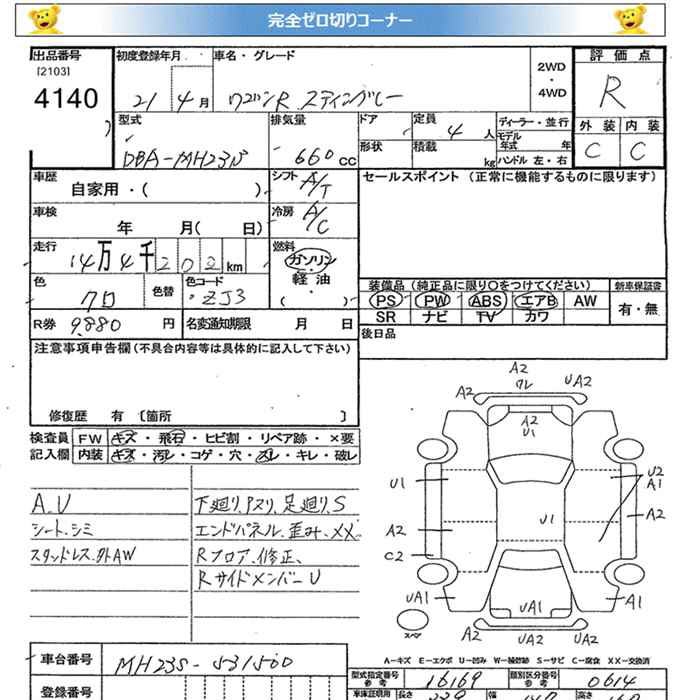 完全ゼロ切りコーナー
出品番号 初度登録年月 車名・グレード 2WD・4WD 評価点
[2103]
4140 21 4月 ワゴンR スティングレー R
型式 排気量 ドア 定員 4人 ディーラー・並行 外装 内装
DBA-MH23S 660cc 形状 積載 kg モデル年式 年 C C
ハンドル 左・右
車歴 自家用・( ) シフト A/T セールスポイント (正常に機能するものに限ります)
車検 年 月( 日) 冷房 A/C
走行 14万4千202km 燃料 ガソリン・軽油・( )
色 クロ 色替 色コード ZJ3 装備品 (純正品に限り○をつけてください) 新車保証書
PS PW ABS エアB AW 有・無
SR ナビ TV カワ
R券 9,880円 名変通知期限 月 日 後日品
注意事項申告欄 (不具合内容等は具体的に記入して下さい)
修復歴 有 [箇所 ]
検査員 FW キズ・飛石・ヒビ割・リペア跡・×要
記入欄 内装 キズ・汚レ・コゲ・穴・スレ・キレ・破レ
A.U 下廻り、アスリ、足廻り、S
シート、シミ エンドパネル、歪み、XX
スタッドレス、外AW Rフロア、修正、
RサイドメンバーU
A2
A2 ワレ UA2
A2
U1
U1 U2
A1
U1 A2
A2
C2
UA1 UA1 A1
スペア
A2 UA2 A2
A-キズ E-エクボ U-凹み W-補修跡 S-サビ C-腐食 XX-交換済
車台番号 MH23S-531500 型式指定番号 参考 16169 類別区分番号 参考 0614
登録番号 車庫証明用 長さ 幅 高さ